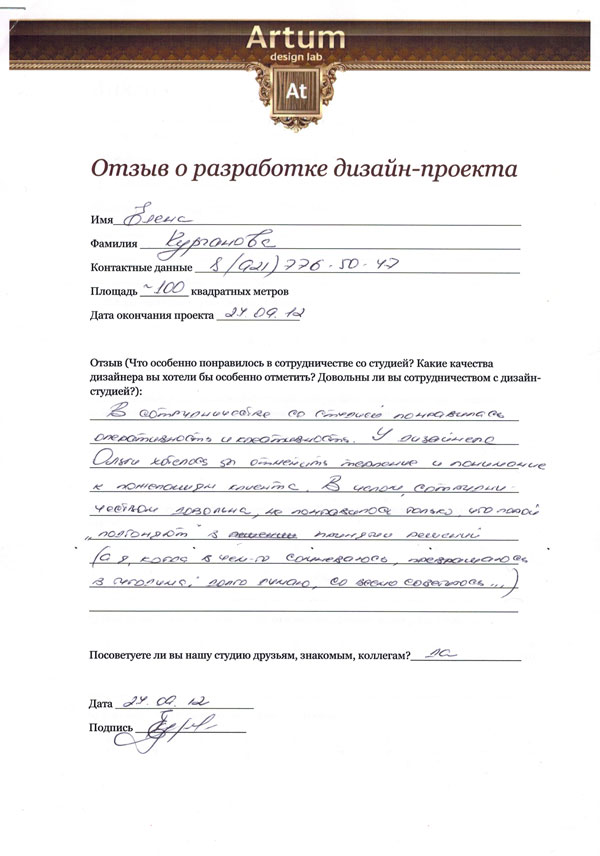 Artum
design lab
At
Отзыв о разработке дизайн-проекта
Имя Елена
Фамилия Курганова
Контактные данные 8 (921) 776-50-47
Площадь ~100 квадратных метров
Дата окончания проекта 24.09.12
Отзыв (Что особенно понравилось в сотрудничестве со студией? Какие качества
дизайнера вы хотели бы особенно отметить? Довольны ли вы сотрудничеством с дизайн-
студией?):
В сотрудничестве со студией понравилась
оперативность и креативность. У дизайнера
Ольги хотелось бы отметить терпение и понимание
к пожеланиям клиента. В целом, сотрудни-
чеством довольна, не понравилось только, что порой
„подгоняют" в принятии решений
(а я, когда в чем-то сомневаюсь, превращаюсь
в долго думаю, со всеми советуюсь...)
Посоветуете ли вы нашу студию друзьям, знакомым, коллегам? да
Дата 24.09.12
Подпись